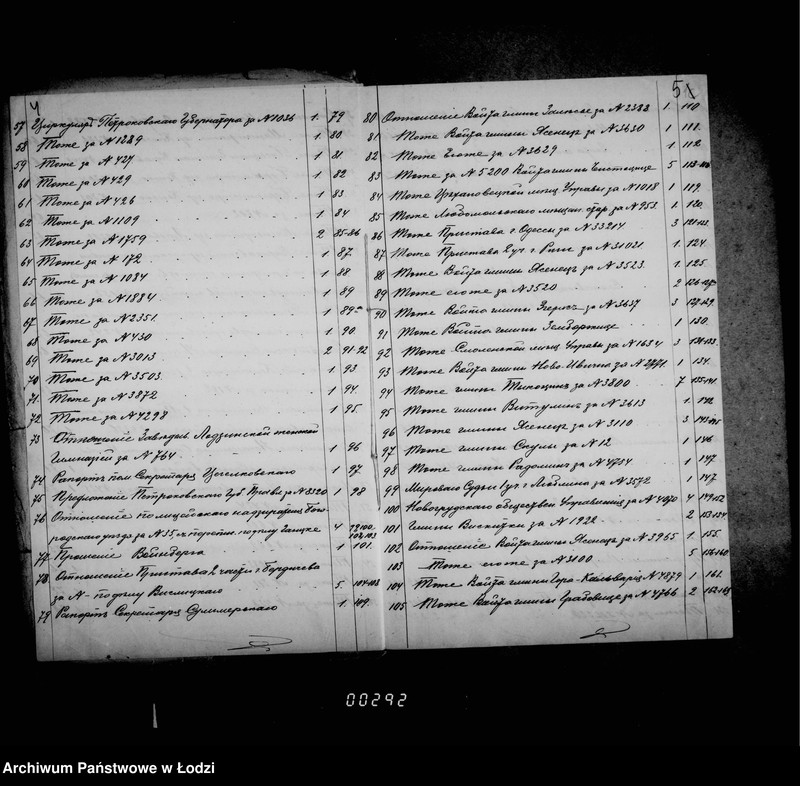 4
57 Циркуляръ Петроковскаго Губернатора за N 1036 1. 79
58 Тоже за N 1289 1 80
59 Тоже за N 427 1 81
60 Тоже за N 429 1 82
61 Тоже за N 426 1 83
62 Тоже за N 1109 1 84
63 Тоже за N 1759 2 85-86
64 Тоже за N 172 1 87
65 Тоже за N 1084 1 88
66 Тоже за N 1884 1 89
67 Тоже за N 2351 1 89
68 Тоже за N 430 1 90
69 Тоже за N 3013 2 91-92
70 Тоже за N 3503 1 93
71 Тоже за N 3872 1 94
72 Тоже за N 4298 1 95
73 Отношеніе Лодзинской женской
гимназіей за N 764 1 96
74 Рапортъ Секретаря 1 97
75 Предложеніе Петроковскаго Губ. за N 3320 1 98
76 Отношеніе полицейскаго
уѣзда за N 35 4
77 Прошеніе 1 101.
78 Отношеніе Пристава 2 части г. Бердичева
за N - по дѣлу 5 104-108
79 Рапортъ Секретаря 1 109.
5
80 Отношеніе Войта гмины за N 2388 1 110
81 Тоже Войта гмины Ясенецъ за N 3630 1 111
82 Тоже его же за N 3629 1 112
83 Тоже за N 5200 Войта гмины 5
84 Тоже мѣщ. Управы за N 1018 1 119
85 Тоже за N 953 1 120
86 Тоже Пристава г. Одессы за N 33214 3
87 Тоже Пристава 2 уч. г. Риги за N 31021 1 124
88 Тоже Войта гмины Ясенецъ за N 3523 1 125
89 Тоже его же за N 3520 2 126-127
90 Тоже Войта гмины за N 3637 3 127-129
91 Тоже Войта гмины 1 130
92 Тоже Смоленской мѣщ. Управы за N 1634 3 131-133
93 Тоже Войта гмины за N 1 134
94 Тоже гмины Тыкоцинъ за N 3800 7 135-141
95 Тоже гмины за N 3613 1 142
96 Тоже гмины Ясенецъ за N 3110 3 143-145
97 Тоже гмины Скулы за N 12 1 146
98 Тоже гмины Радоминъ за N 4 1 147
99 Мирового Судьи 1 уч. г. Люблина за N 3572 1 147
100 Новогрудскаго обществен. Управленія за N 4070 4 149-152
101 Гмины Вискитки за N 1922 2 153-154
102 Отношеніе Войта гмины Ясенецъ за N 3965 1 155
103 Тоже его же за N 3100 5 156-160
104 Тоже Войта гмины Гора-Кальварія N 4879 1 161
105 Тоже Войта гмины Грабовице за N 4766 2 162-163
00292
Archiwum Państwowe w Łodzi